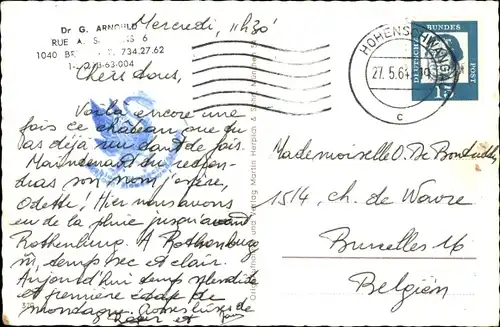 Dr G. ARNOULD
RUE A. 6
1040 734.27.62
1-63-004
Mercredi, 11h30
Chers tous,
Voilà encore une
fois ce château que tu
as déjà vu tant de fois.
Maintenant tu retien-
dras son nom j'espère,
Odette! Hier nous avons
eu de la pluie jusqu'avant
Rothenburg. A Rothenburg
temps sec et clair.
Aujourd'hui temps splendide
et première étape de
montagne.
et
HOHENSCHWANGAU
27.5.64
c
DEUTSCHE BUNDESPOST
15
Mademoiselle O. De
1514, ch. de Wavre
Bruxelles 16
Belgien
und Verlag Martin Herpich